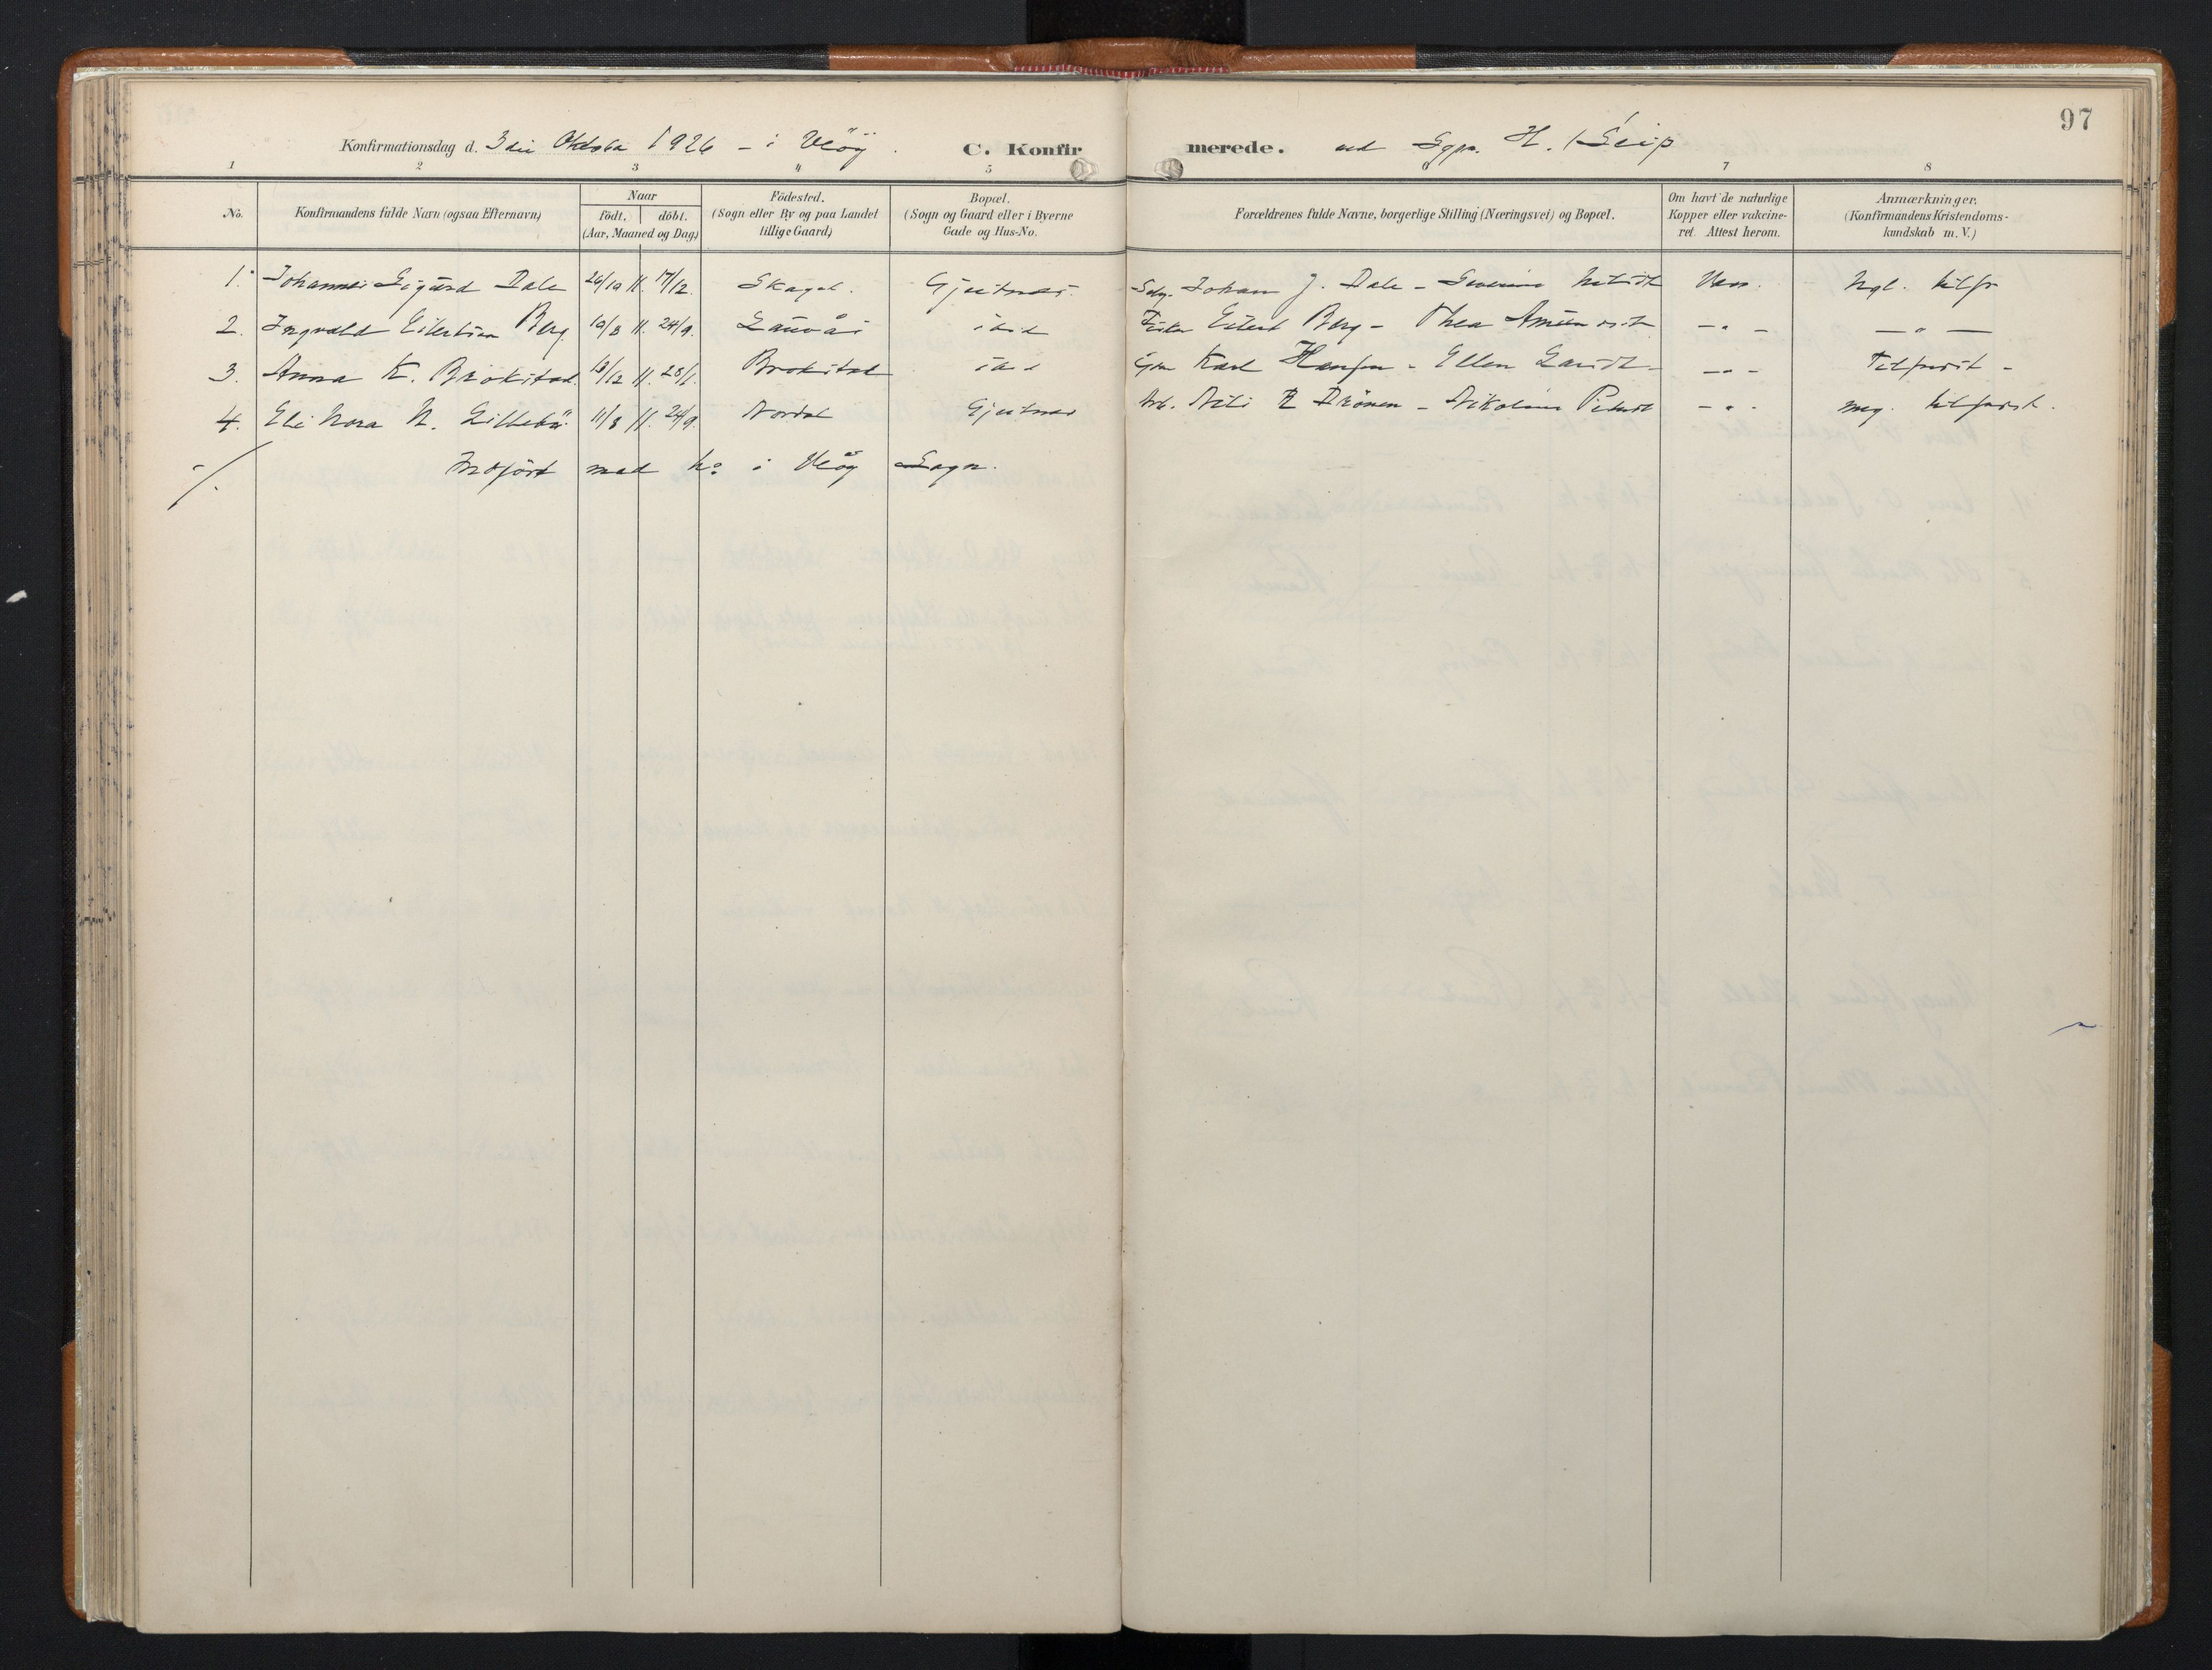 97
Konfirmationsdag d. 3die Oktober 1926 - i Veöy. C. Konfirmerede. ved Sgpr. H. Seip
1 2 3 4 5 6 7 8
No. Konfirmandens fulde Navn (ogsaa Efternavn) Naar født, | döbt. (Aar, Maaned og Dag) Födested. (Sogn eller By og paa Landet tillige Gaard) Bopæl. (Sogn og Gaard eller i Byerne Gade og Hus-No. Forældrenes fulde Navne, borgerlige Stilling (Næringsvei) og Bopæl. Om havt de naturlige Kopper eller vakcineret. Attest herom. Anmærkninger. (Konfirmandens Kristendomskundskab m. V.)
1. Johannes Sigurd Dale 26/10 11. 17/12. Skaget. Gjeitnes. Johan J. Dale - Severine Vacc. Mgl. tilfr
2. Ingvald Eilertsen Berg 10/8 11. 24/9. Lauvås ibid Fisker Eilert Berg - Thea -"- -"-
3. Anna K. Brokstad. 13/12 11. 28/1. Brokstad ibid Karl Hansen - Ellen -"- Tilfredst -
4. Eli Nora N. Lillebö. 11/8 11. 24/9. Nordal Gjeitnes Arb. Nils Drönen - Nikoline Pedersdt -"- meg. tilfredst.
Indført med No i Veöy Sogn.